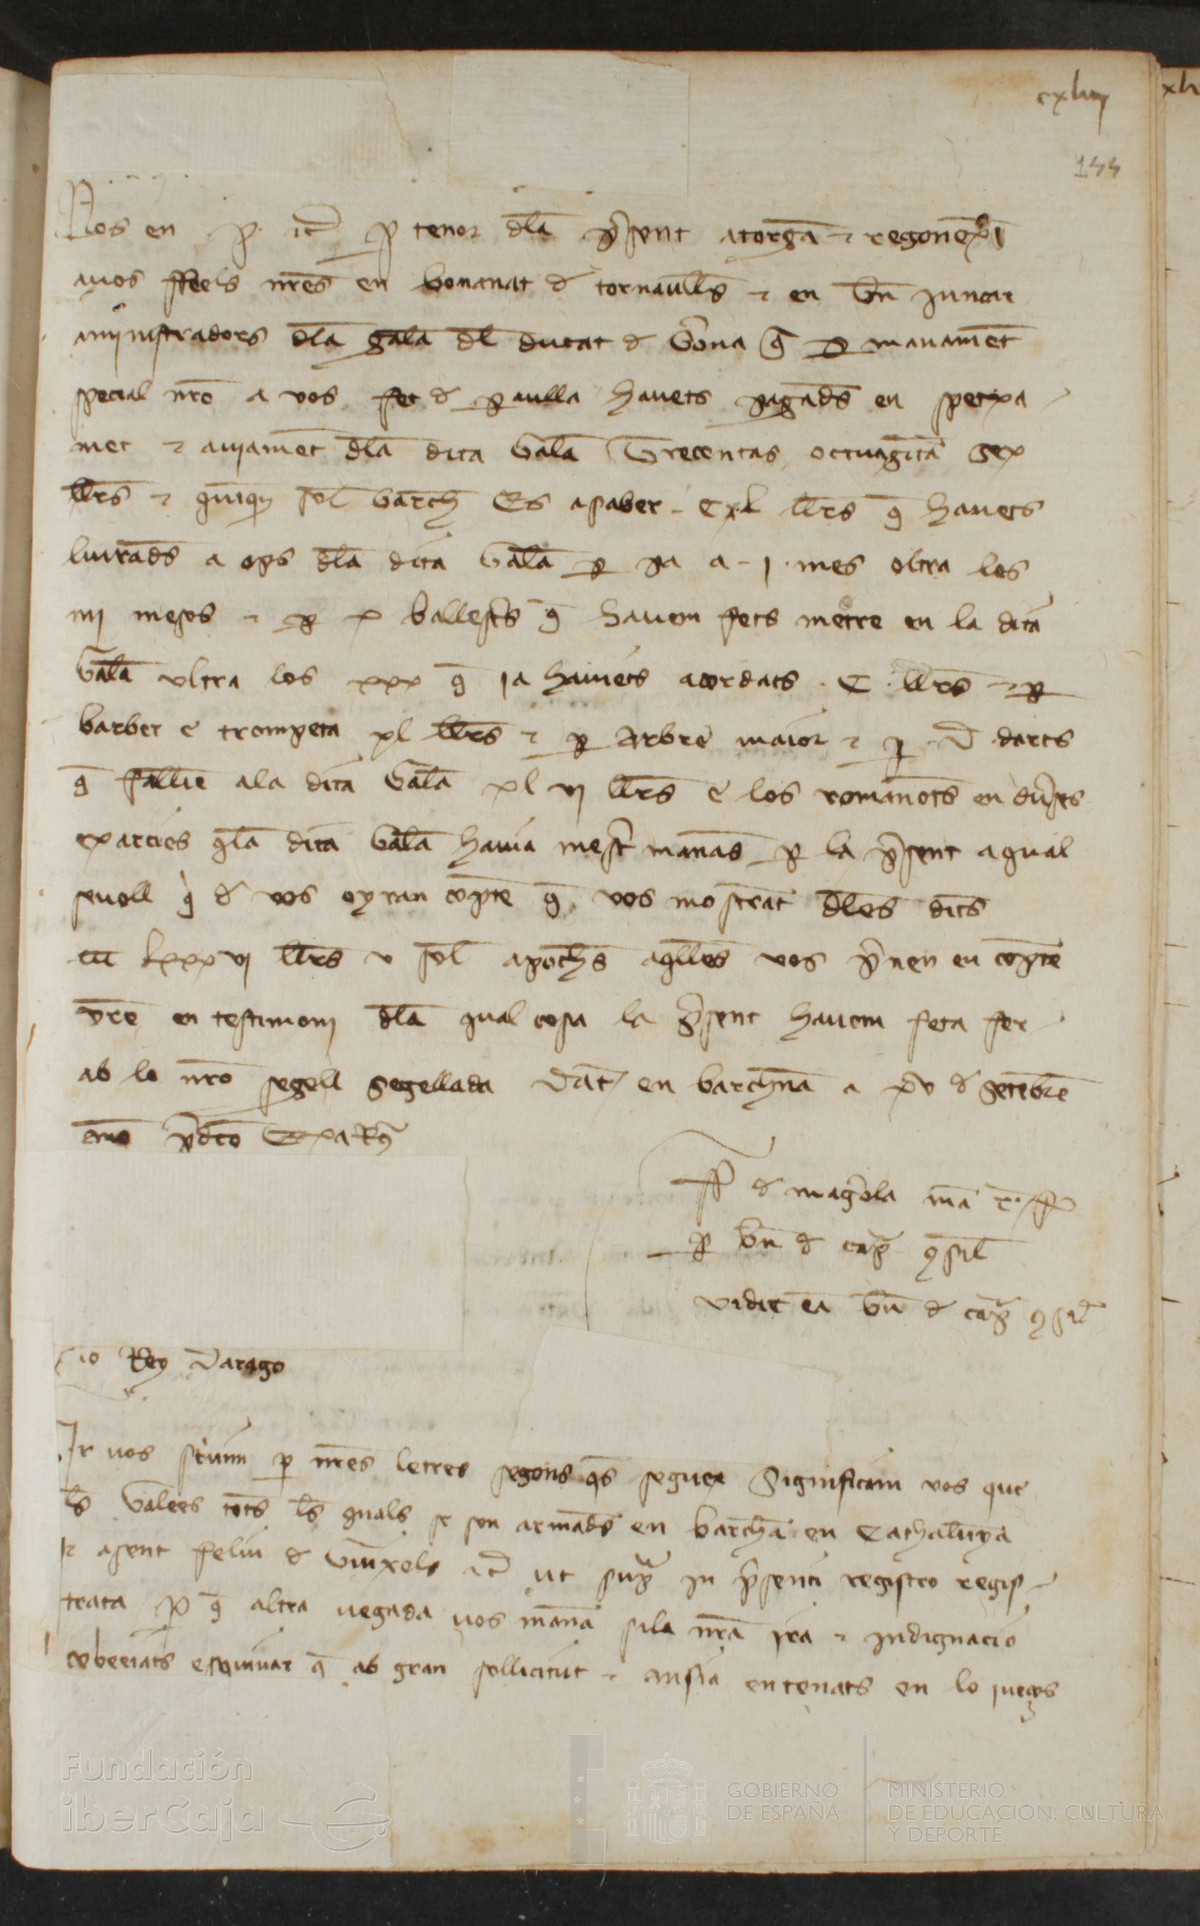 cxliiij
144
Nos en P. etc per tenor dla present atorgam e regonexem
a vos ffeels nres en bonanat de tornavills e en Bn juncar
aministradors dla galea dl ducat de Gerona q per manament
special nro a vos fet de paraulla havets pagads en spetxa
ment e aviament dla dita Galea Trecentas, octuagita sex
llrs e quinque sol barch Es a saber. Cxl llrs q havets
liurads a ops dla dita Galea per pa a .j. mes oltra los
iiij mesos e per x ballesters q havem fets metre en la dita
Galea ultra los xxx q ja havets acordats . C . llrs e per
barber e trompeta xl llrs e per Arbre maior e per D darts
q fallie ala dita Galea xl vj llrs e los romanets en diverses
exarcies qla dita Galea havia mester manam per la present a qual
sevoll q de vos oyran compte q vos mostrat dles dits
ccc lxxxvj llrs v sol apoches aqlles vos prenen en compte
vre en testimoni dla qual cosa la present havem feta fer
ab lo nro segell segellada Dat en barchna a xv de Setembre
anno predco Exa Rg
ff de magerola ma r. ff
per Bn de cap consil
vidit ea Bn de cap consil
Lo Rey Darago
Ir vos scrivim per nres letres segons qs seguex Significam vos que
ls Galees tots ls quals se son armads en barchna en Cathalunya
e a sent feliu de Guixols etc ut supra in presenti registro regis
trata per q altra vegada vos manam sila nra ira e indignacio
cobeeiats esquivar q ab gran sollicitut e ansia entenats en lo juegos
xli
Fundación
iberCaja
GOBIERNO
DE ESPAÑA
MINISTERIO
DE EDUCACIÓN, CULTURA
Y DEPORTE